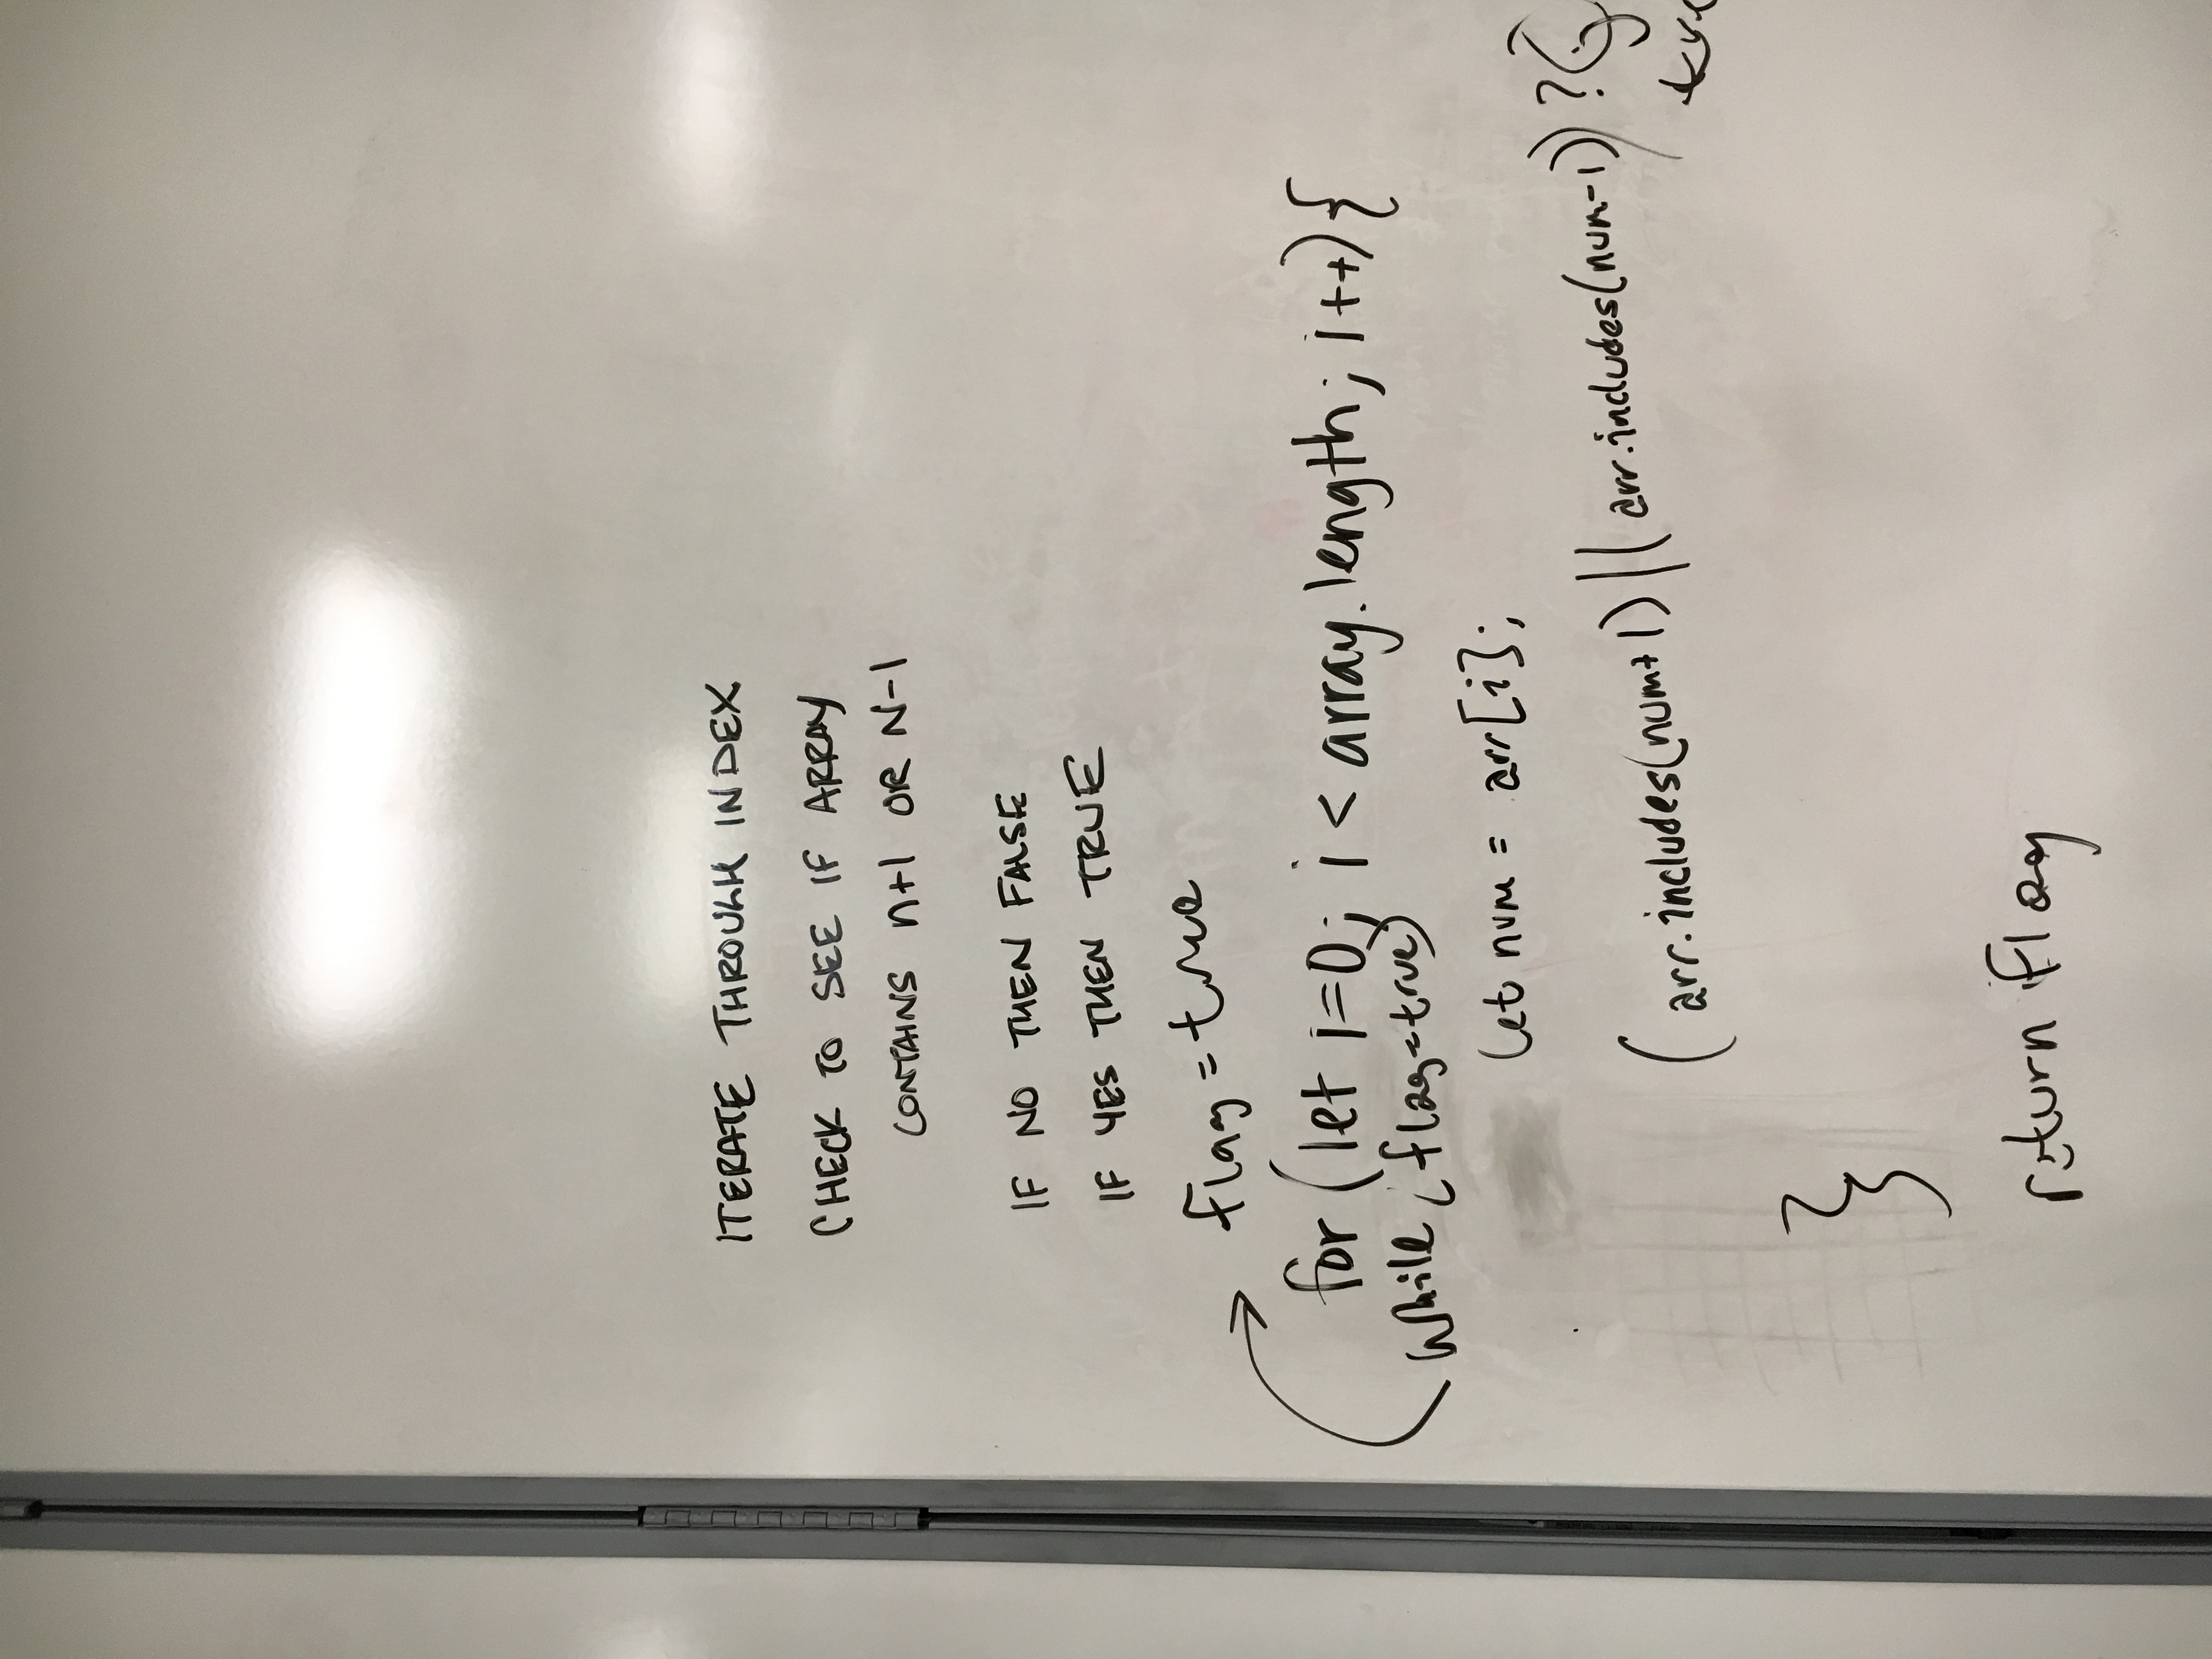 ITERATE THROUGH INDEX
CHECK TO SEE IF ARRAY
CONTAINS n+1 OR N-1
IF NO THEN FALSE
IF YES THEN TRUE
flag = true
for (let i=0; i < array.length; i++){
while (flag=true)
let num = arr[i];
(arr.includes(num+1) || (arr.includes(num-1)) ?
}
}
return flag